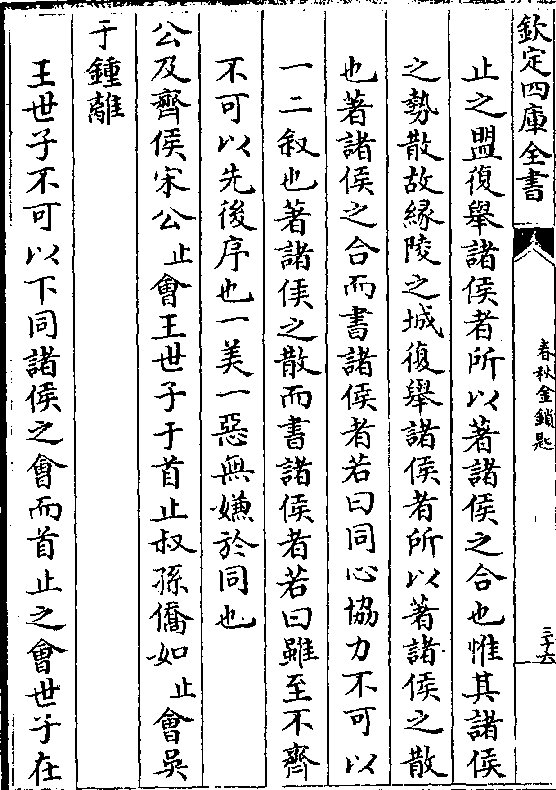 欽定四庫全書
春秋金鎖匙
三十六
止之盟復舉諸侯者所以著諸侯之合也惟其諸侯
之勢散故緣陵之城復舉諸侯者所以著諸侯之散
也著諸侯之合而書諸侯者若曰同心協力不可以
一二叙也著諸侯之散而書諸侯者若曰雖至不齊
不可以先後序也一美一惡無嫌於同也
公及齊侯宋公止會王世子于首止叔孫僑如止會吳
于鍾離
王世子不可以下同諸侯之會而首止之會世子在